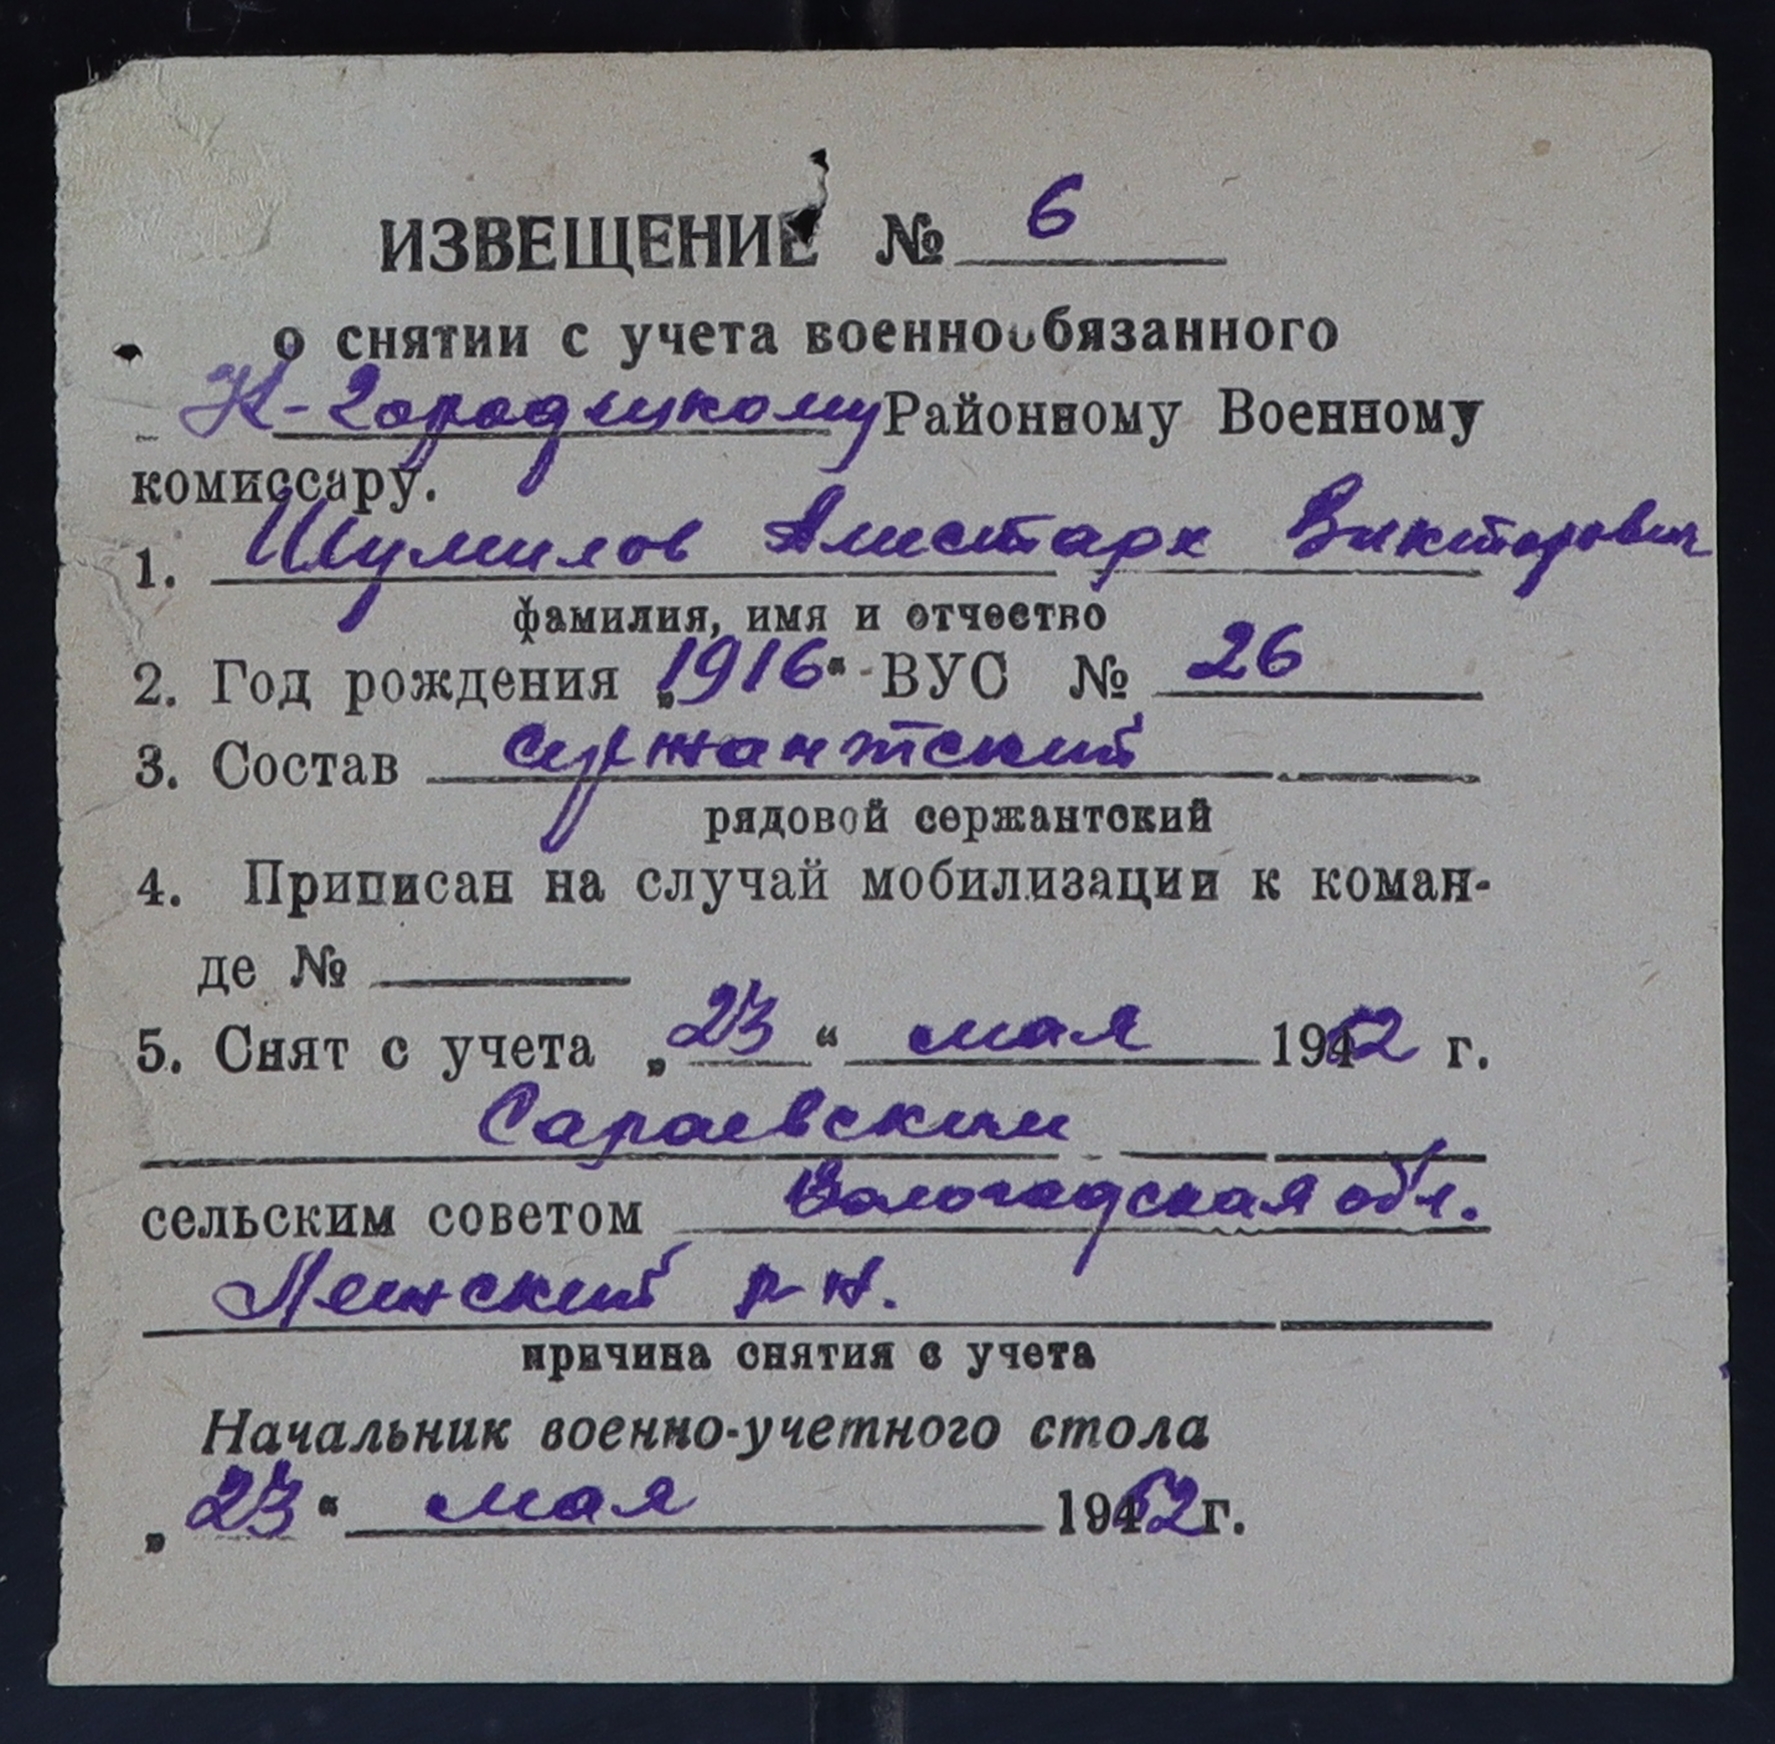 ИЗВЕЩЕНИЕ № 6
о снятии с учета военнообязанного
К-Городецкому Районному Военному
комиссару.
1. Шумилов Алистарх Викторович
фамилия, имя и отчество
2. Год рождения „1916“ ВУС № 26
3. Состав сержантский
рядовой сержантский
4. Приписан на случай мобилизации к коман-
де №
5. Снят с учета „23“ мая 1952 г.
Сараевским
сельским советом Вологодская обл.
р-н.
причина снятия с учета
Начальник военно-учетного стола
„23“ мая 1952 г.